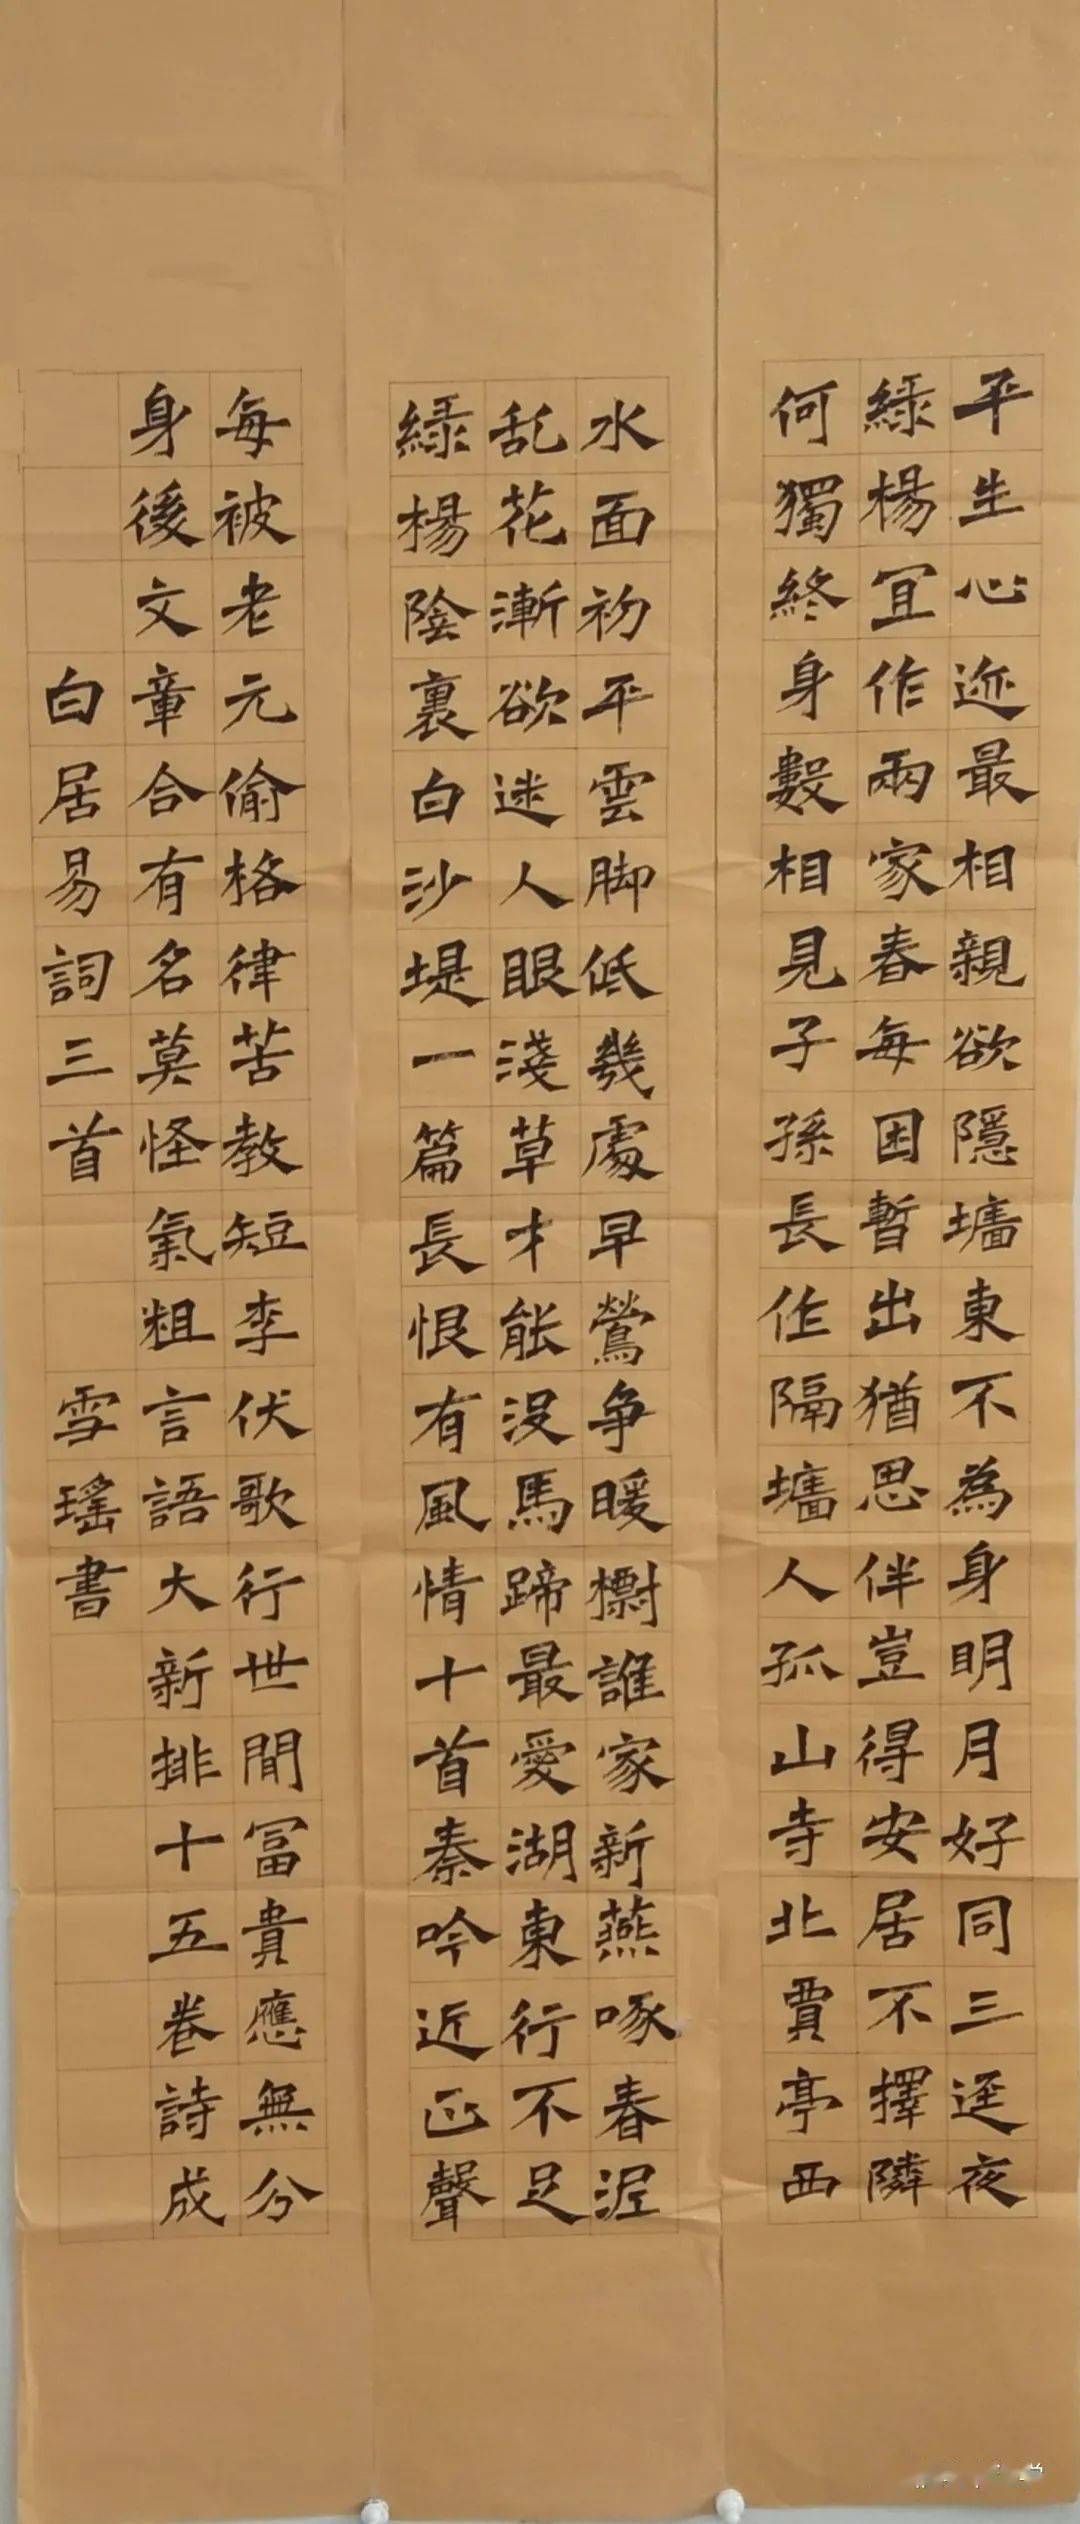 平生心迹最相親欲隱墻東不為身明月好同三逕夜
綠楊宜作兩家春每因暫出猶思伴豈得安居不擇隣
何獨終身數相見子孫長作隔墻人孤山寺北賈亭西
水面初平雲脚低幾處早鶯争暖樹誰家新燕啄春泥
乱花漸欲迷人眼淺草才能没馬蹄最愛湖東行不足
綠楊陰裏白沙堤一篇長恨有風情十首秦吟近正聲
每被老元偷格律苦教短李伏歌行世間富貴應無分
身後文章合有名莫怪氣粗言語大新排十五卷詩成
白居易詞三首 雪瑤書